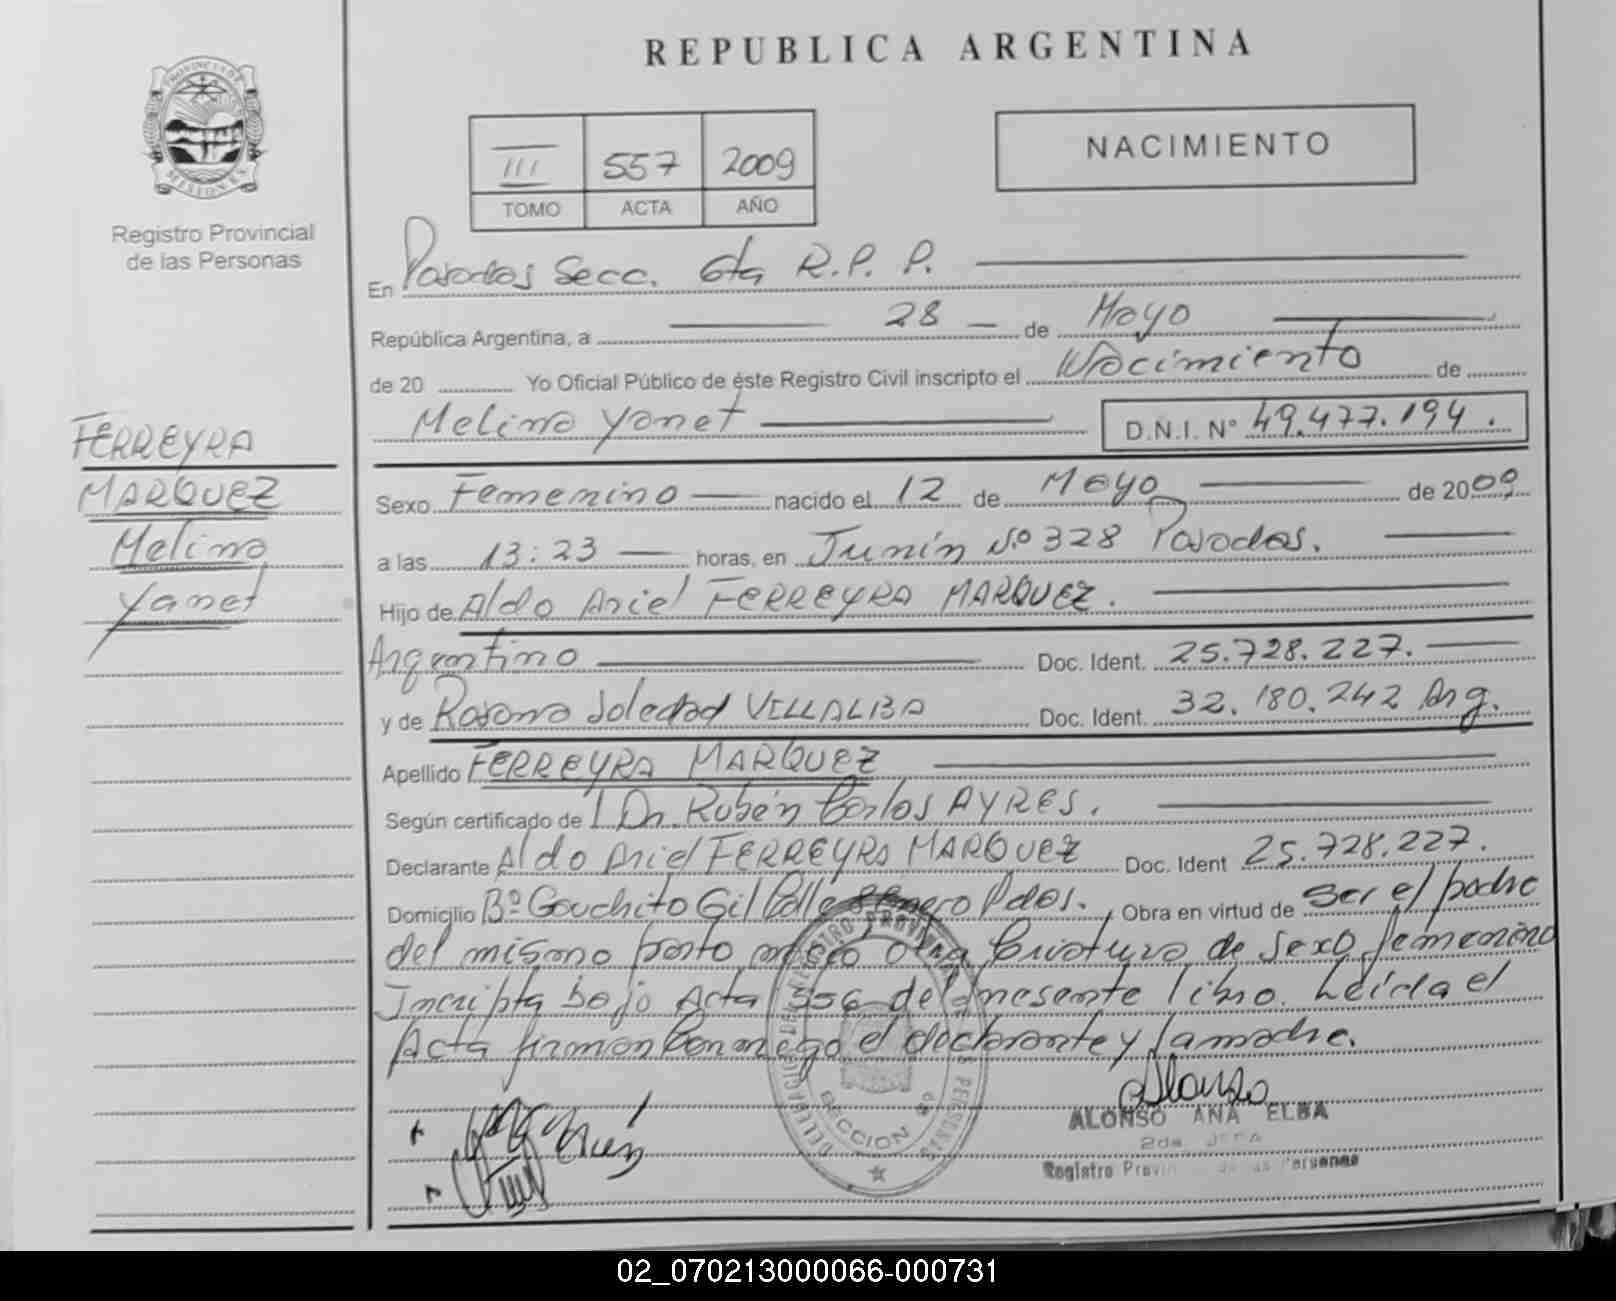 REPUBLICA ARGENTINA
PROVINCIA DE
MISIONES
Registro Provincial
de las Personas
III 557 2009
TOMO ACTA AÑO
NACIMIENTO
En Posadas Secc. 6ta R.P.P.
República Argentina, a 28 de Mayo
de 20 Yo Oficial Público de éste Registro Civil inscripto el Nacimiento de
Melina Yanet D.N.I. Nº 49.477.194.
FERREYRA
MARQUEZ
Melina
Yanet
Sexo Femenino nacido el 12 de Mayo de 2009
a las 13:23 horas, en Junín N.º 328 Posadas.
Hijo de Aldo Ariel FERREYRA MARQUEZ.
Argentino Doc. Ident. 25.728.227.
y de Rosana Soledad VILLALBA Doc. Ident. 32.180.242 Arg.
Apellido FERREYRA MARQUEZ
Según certificado de Dr. Rubén Carlos AYRES.
Declarante Aldo Ariel FERREYRA MARQUEZ Doc. Ident 25.728.227.
Domicilio Bº Gauchito Gil Calle Pdas. Obra en virtud de ser el padre
del mismo parto nació otra Criatura de sexo femenino
Incripta bajo Acta 556 del presente libro. Leída el
Acta firman Conmigo el declarante y la madre.
SECCION
ALONSO ANA ELBA
2da JEFA
Registro Provin de las Personas
02_070213000066-000731